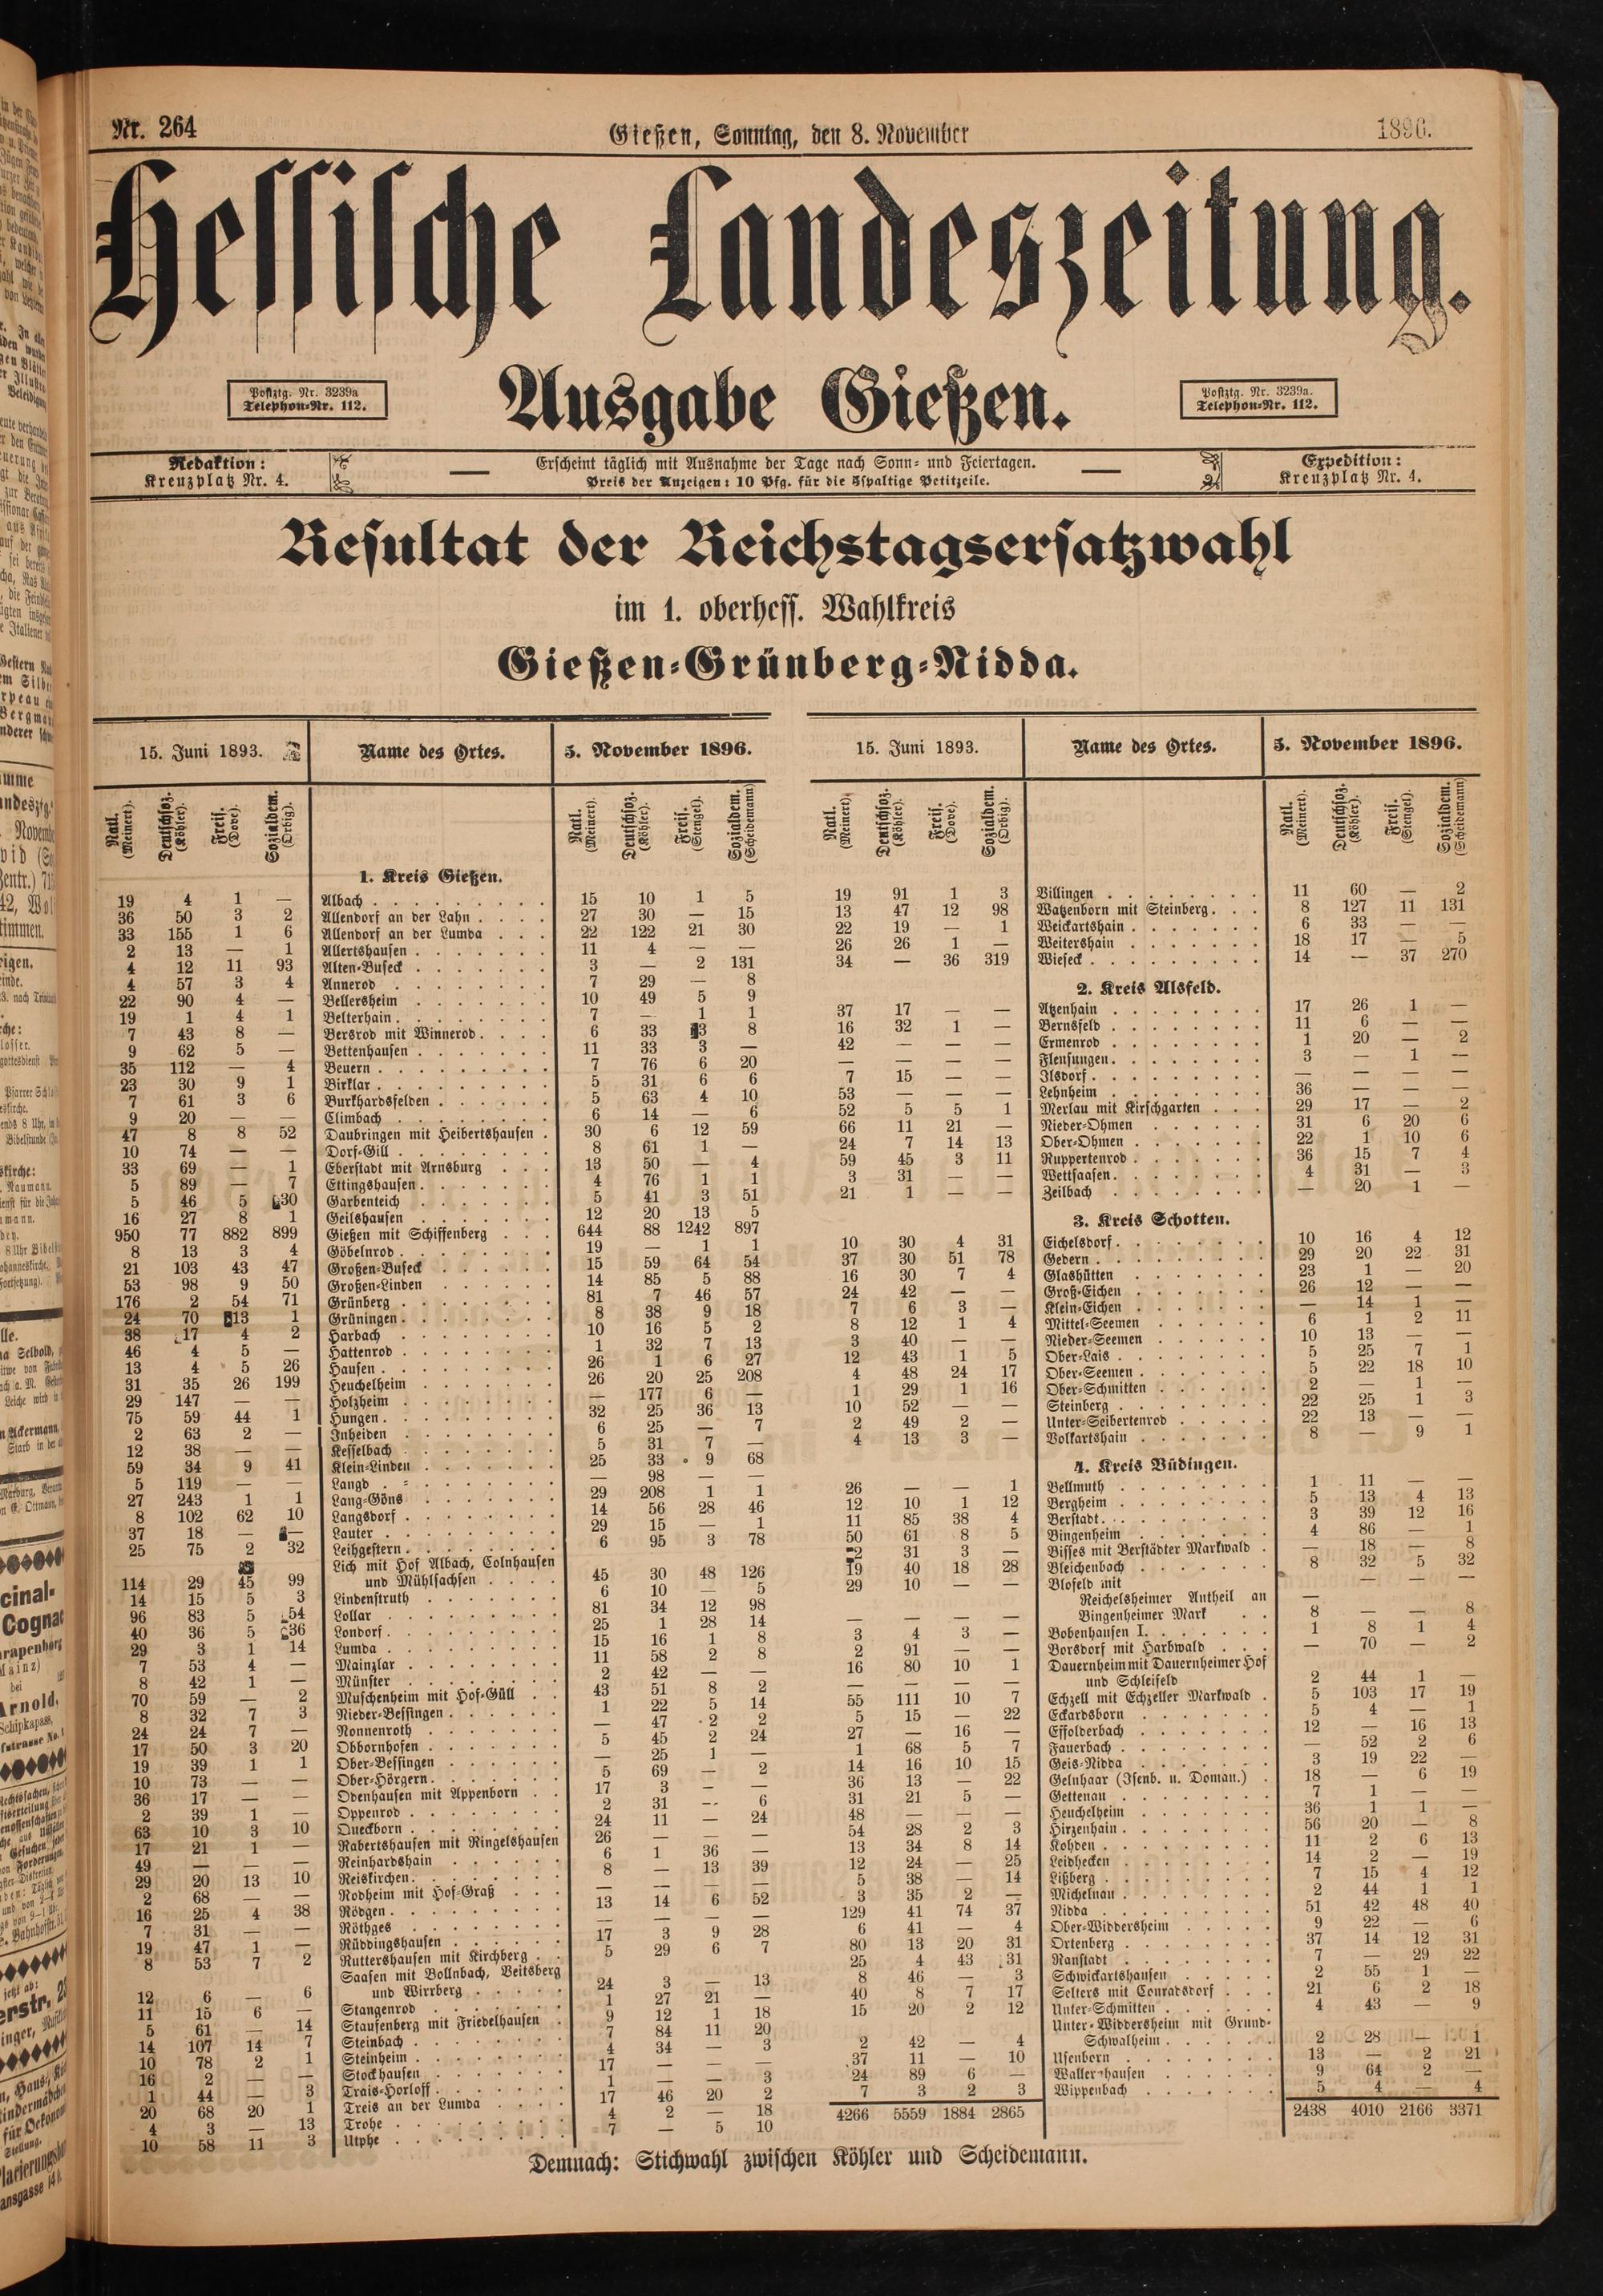 Nr. 264 Gießen, Sonntag, den 8. November 1896.
Hessische Landeszeitung.
Ausgabe Gießen.
Postztg. Nr. 3239a
Telephon-Nr. 112.
Postztg. Nr. 3239a.
Telephon-Nr. 112.
Redaktion:
Kreuzplatz Nr. 4.
Erscheint täglich mit Ausnahme der Tage nach Sonn- und Feiertagen.
Preis der Anzeigen: 10 Pfg. für die 5spaltige Petitzeile.
Expedition:
Kreuzplatz Nr. 4.
Resultat der Reichstagsersatzwahl
im 1. oberhess. Wahlkreis
Gießen-Grünberg-Nidda.
15. Juni 1893. Name des Ortes. 5. November 1896.
Natl. (Meinert). Deutschsoz. (Köhler). Freis. (Dove). Sozialdem. (Orbig). Natl. (Meinert). Deutschsoz. (Köhler). Freis. (Stengel). Sozialdem. (Scheidemann)
1. Kreis Gießen.
19 4 1 — Albach 15 10 1 5
36 50 3 2 Allendorf an der Lahn 27 30 — 15
33 155 1 6 Allendorf an der Lumda 22 122 21 30
2 13 — 1 Allertshausen 11 4 — —
4 12 11 93 Alten-Buseck 3 — 2 131
4 57 3 4 Annerod 7 29 — 8
22 90 4 — Bellersheim 10 49 5 9
19 1 4 1 Belterhain 7 — 1 1
7 43 8 — Bersrod mit Winnerod 6 33 3 8
9 62 5 — Bettenhausen 11 33 3 —
35 112 — 4 Beuern 7 76 6 20
23 30 9 1 Birklar 5 31 6 6
7 61 3 6 Burkhardsfelden 5 63 4 10
9 20 — — Climbach 6 14 — 6
47 8 8 52 Daubringen mit Heibertshausen 30 6 12 59
10 74 — — Dorf-Gill 8 61 1 —
33 69 — 1 Eberstadt mit Arnsburg 13 50 — 4
5 89 — 7 Ettingshausen 4 76 1 1
5 46 5 30 Garbenteich 5 41 3 51
16 27 8 1 Geilshausen 12 20 13 5
950 77 882 899 Gießen mit Schiffenberg 644 88 1242 897
8 13 3 4 Göbelnrod 19 — 1 1
21 103 43 47 Großen-Buseck 15 59 64 54
53 98 9 50 Großen-Linden 14 85 5 88
176 2 54 71 Grünberg 81 7 46 57
24 70 13 1 Grüningen 8 38 9 18
38 17 4 2 Harbach 10 16 5 2
46 4 5 — Hattenrod 1 32 7 13
13 4 5 26 Hausen 26 1 6 27
31 35 26 199 Heuchelheim 26 20 25 208
29 147 — — Holzheim — 177 6 —
75 59 44 1 Hungen 32 25 36 13
2 63 2 — Inheiden 6 25 — 7
12 38 — — Kesselbach 5 31 7 —
59 34 9 41 Klein-Linden 25 33 9 68
5 119 — — Langd — 98 — —
27 243 1 1 Lang-Göns 29 208 1 1
8 102 62 10 Langsdorf 14 56 28 46
37 18 — — Lauter 29 15 — 1
25 75 2 32 Leihgestern 6 95 3 78
Lich mit Hof Albach, Colnhausen
114 29 45 99 und Mühlsachsen 45 30 48 126
14 15 5 3 Lindenstruth 6 10 — 5
96 83 5 54 Lollar 81 34 12 98
40 36 5 36 Londorf 25 1 28 14
29 3 1 14 Lumda 15 16 1 8
7 53 4 — Mainzlar 11 58 2 8
8 42 1 — Münster 2 42 — —
70 59 — 2 Muschenheim mit Hof-Güll 43 51 8 2
8 32 7 3 Nieder-Bessingen 1 22 5 14
24 24 7 — Nonnenroth — 47 2 2
17 50 3 20 Obbornhofen 5 45 2 24
19 39 1 1 Ober-Bessingen — 25 1 —
10 73 — — Ober-Hörgern 5 69 — 2
36 17 — — Odenhausen mit Appenborn 17 3 — —
2 39 1 — Oppenrod 2 31 — 6
63 10 3 10 Queckborn 24 11 — 24
17 21 1 — Rabertshausen mit Ringelshausen 26 — — —
49 — — — Reinhardshain 6 1 36 —
29 20 13 10 Reiskirchen 8 — 13 39
2 68 — — Rodheim mit Hof-Graß — — — —
16 25 4 38 Rödgen 13 14 6 52
7 31 — — Röthges — — — —
19 47 1 — Rüddingshausen 17 3 9 28
8 53 7 2 Ruttershausen mit Kirchberg 5 29 6 7
Saasen mit Bollnbach, Veitsberg
12 6 — 6 und Wirrberg 24 3 — 13
11 15 6 — Stangenrod 1 27 21 —
5 61 — 14 Staufenberg mit Friedelhausen 9 12 1 18
14 107 14 7 Steinbach 7 84 11 20
10 78 2 1 Steinheim 4 34 — 3
16 2 — — Stockhausen 17 — — —
1 44 — 3 Trais-Horloff 1 — — 3
20 68 20 1 Treis an der Lumda 17 46 20 2
4 3 — 13 Trohe 4 2 — 18
10 58 11 3 Utphe 7 — 5 10
15. Juni 1893. Name des Ortes. 5. November 1896.
Natl. (Meinert). Deutschsoz. (Köhler). Freis. (Dove) Sozialdem. (Orbig). Natl. (Meinert). Deutschsoz. (Köhler). Freis. (Stengel). Sozialdem. (Scheidemann)
19 91 1 3 Villingen 11 60 — 2
13 47 12 98 Watzenborn mit Steinberg 8 127 11 131
22 19 — 1 Weickartshain 6 33 — —
26 26 1 — Weitershain 18 17 — 5
34 — 36 319 Wieseck 14 — 37 270
2. Kreis Alsfeld.
37 17 — — Atzenhain 17 26 1 —
16 32 1 — Bernsfeld 11 6 — —
42 — — — Ermenrod 1 20 — 2
— — — — Flensungen 3 — 1 —
7 15 — — Ilsdorf — — — —
53 — — — Lehnheim 36 — — —
52 5 5 1 Merlau mit Kirschgarten 29 17 — 2
66 11 21 — Nieder-Ohmen 31 6 20 6
24 7 14 13 Ober-Ohmen 22 1 10 6
59 45 3 11 Ruppertenrod 36 15 7 4
3 31 — — Wettsaasen 4 31 — 3
21 1 — — Zeilbach — 20 1 —
3. Kreis Schotten.
10 30 4 31 Eichelsdorf 10 16 4 12
37 30 51 78 Gedern 29 20 22 31
16 30 7 4 Glashütten 23 1 — 20
24 42 — — Groß-Eichen 26 12 — —
7 6 3 — Klein-Eichen — 14 1 —
8 12 1 4 Mittel-Seemen 6 1 2 11
3 40 — — Nieder-Seemen 10 13 — —
12 43 1 5 Ober-Lais 5 25 7 1
4 48 24 17 Ober-Seemen 5 22 18 10
1 29 1 16 Ober-Schmitten 2 — 1 —
10 52 — — Steinberg 22 25 1 3
2 49 2 — Unter-Seibertenrod 22 13 — —
4 13 3 — Volkartshain 8 — 9 1
4. Kreis Büdingen.
26 — — 1 Bellmuth 1 11 — —
12 10 1 12 Bergheim 5 13 4 13
11 85 38 4 Berstadt 3 39 12 16
50 61 8 5 Bingenheim 4 86 — 1
2 31 3 — Bisses mit Berstädter Markwald — 18 — 8
19 40 18 28 Bleichenbach 8 32 5 32
29 10 — — Blofeld mit — — —
Reichelsheimer Antheil an —
— — — — Bingenheimer Mark 8 — — 8
3 4 3 — Bobenhausen I. 1 8 1 4
2 91 — — Borsdorf mit Harbwald — 70 — 2
16 80 10 1 Dauernheim mit Dauernheimer Hof
— — — — und Schleifeld 2 44 1 —
55 111 10 7 Echzell mit Echzeller Markwald 5 103 17 19
5 15 — 22 Eckardsborn 5 4 — 1
27 — 16 — Effolderbach 12 — 16 13
1 68 5 7 Fauerbach — 52 2 6
14 16 10 15 Geis-Nidda 3 19 22 —
36 13 — 22 Gelnhaar (Isenb. u. Doman.) 18 — 6 19
31 21 5 — Gettenau 7 1 — —
48 — — — Heuchelheim 36 1 1 —
54 28 2 3 Hirzenhain 56 20 — 8
13 34 8 14 Kohden 11 2 6 13
12 24 — 25 Leidhecken 14 2 — 19
5 38 — 14 Lißberg 7 15 4 12
3 35 2 — Michelnau 2 44 1 1
129 41 74 37 Nidda 51 42 48 40
6 41 — 4 Ober-Widdersheim 9 22 — 6
80 13 20 31 Ortenberg 37 14 12 31
25 4 43 31 Ranstadt 7 — 29 22
8 46 — 3 Schwickartshausen 2 55 1 —
40 8 7 17 Selters mit Conradsdorf 21 6 2 18
15 20 2 12 Unter-Schmitten 4 43 — 9
Unter-Widdersheim mit Grund-
2 42 — 4 Schwalheim 2 28 — 1
37 11 — 10 Usenborn 13 — 2 21
24 89 6 — Wallernhausen 9 64 2 —
7 3 2 3 Wippenbach 5 4 — 4
4266 5559 1884 2865 2438 4010 2166 3371
Demnach: Stichwahl zwischen Köhler und Scheidemann.